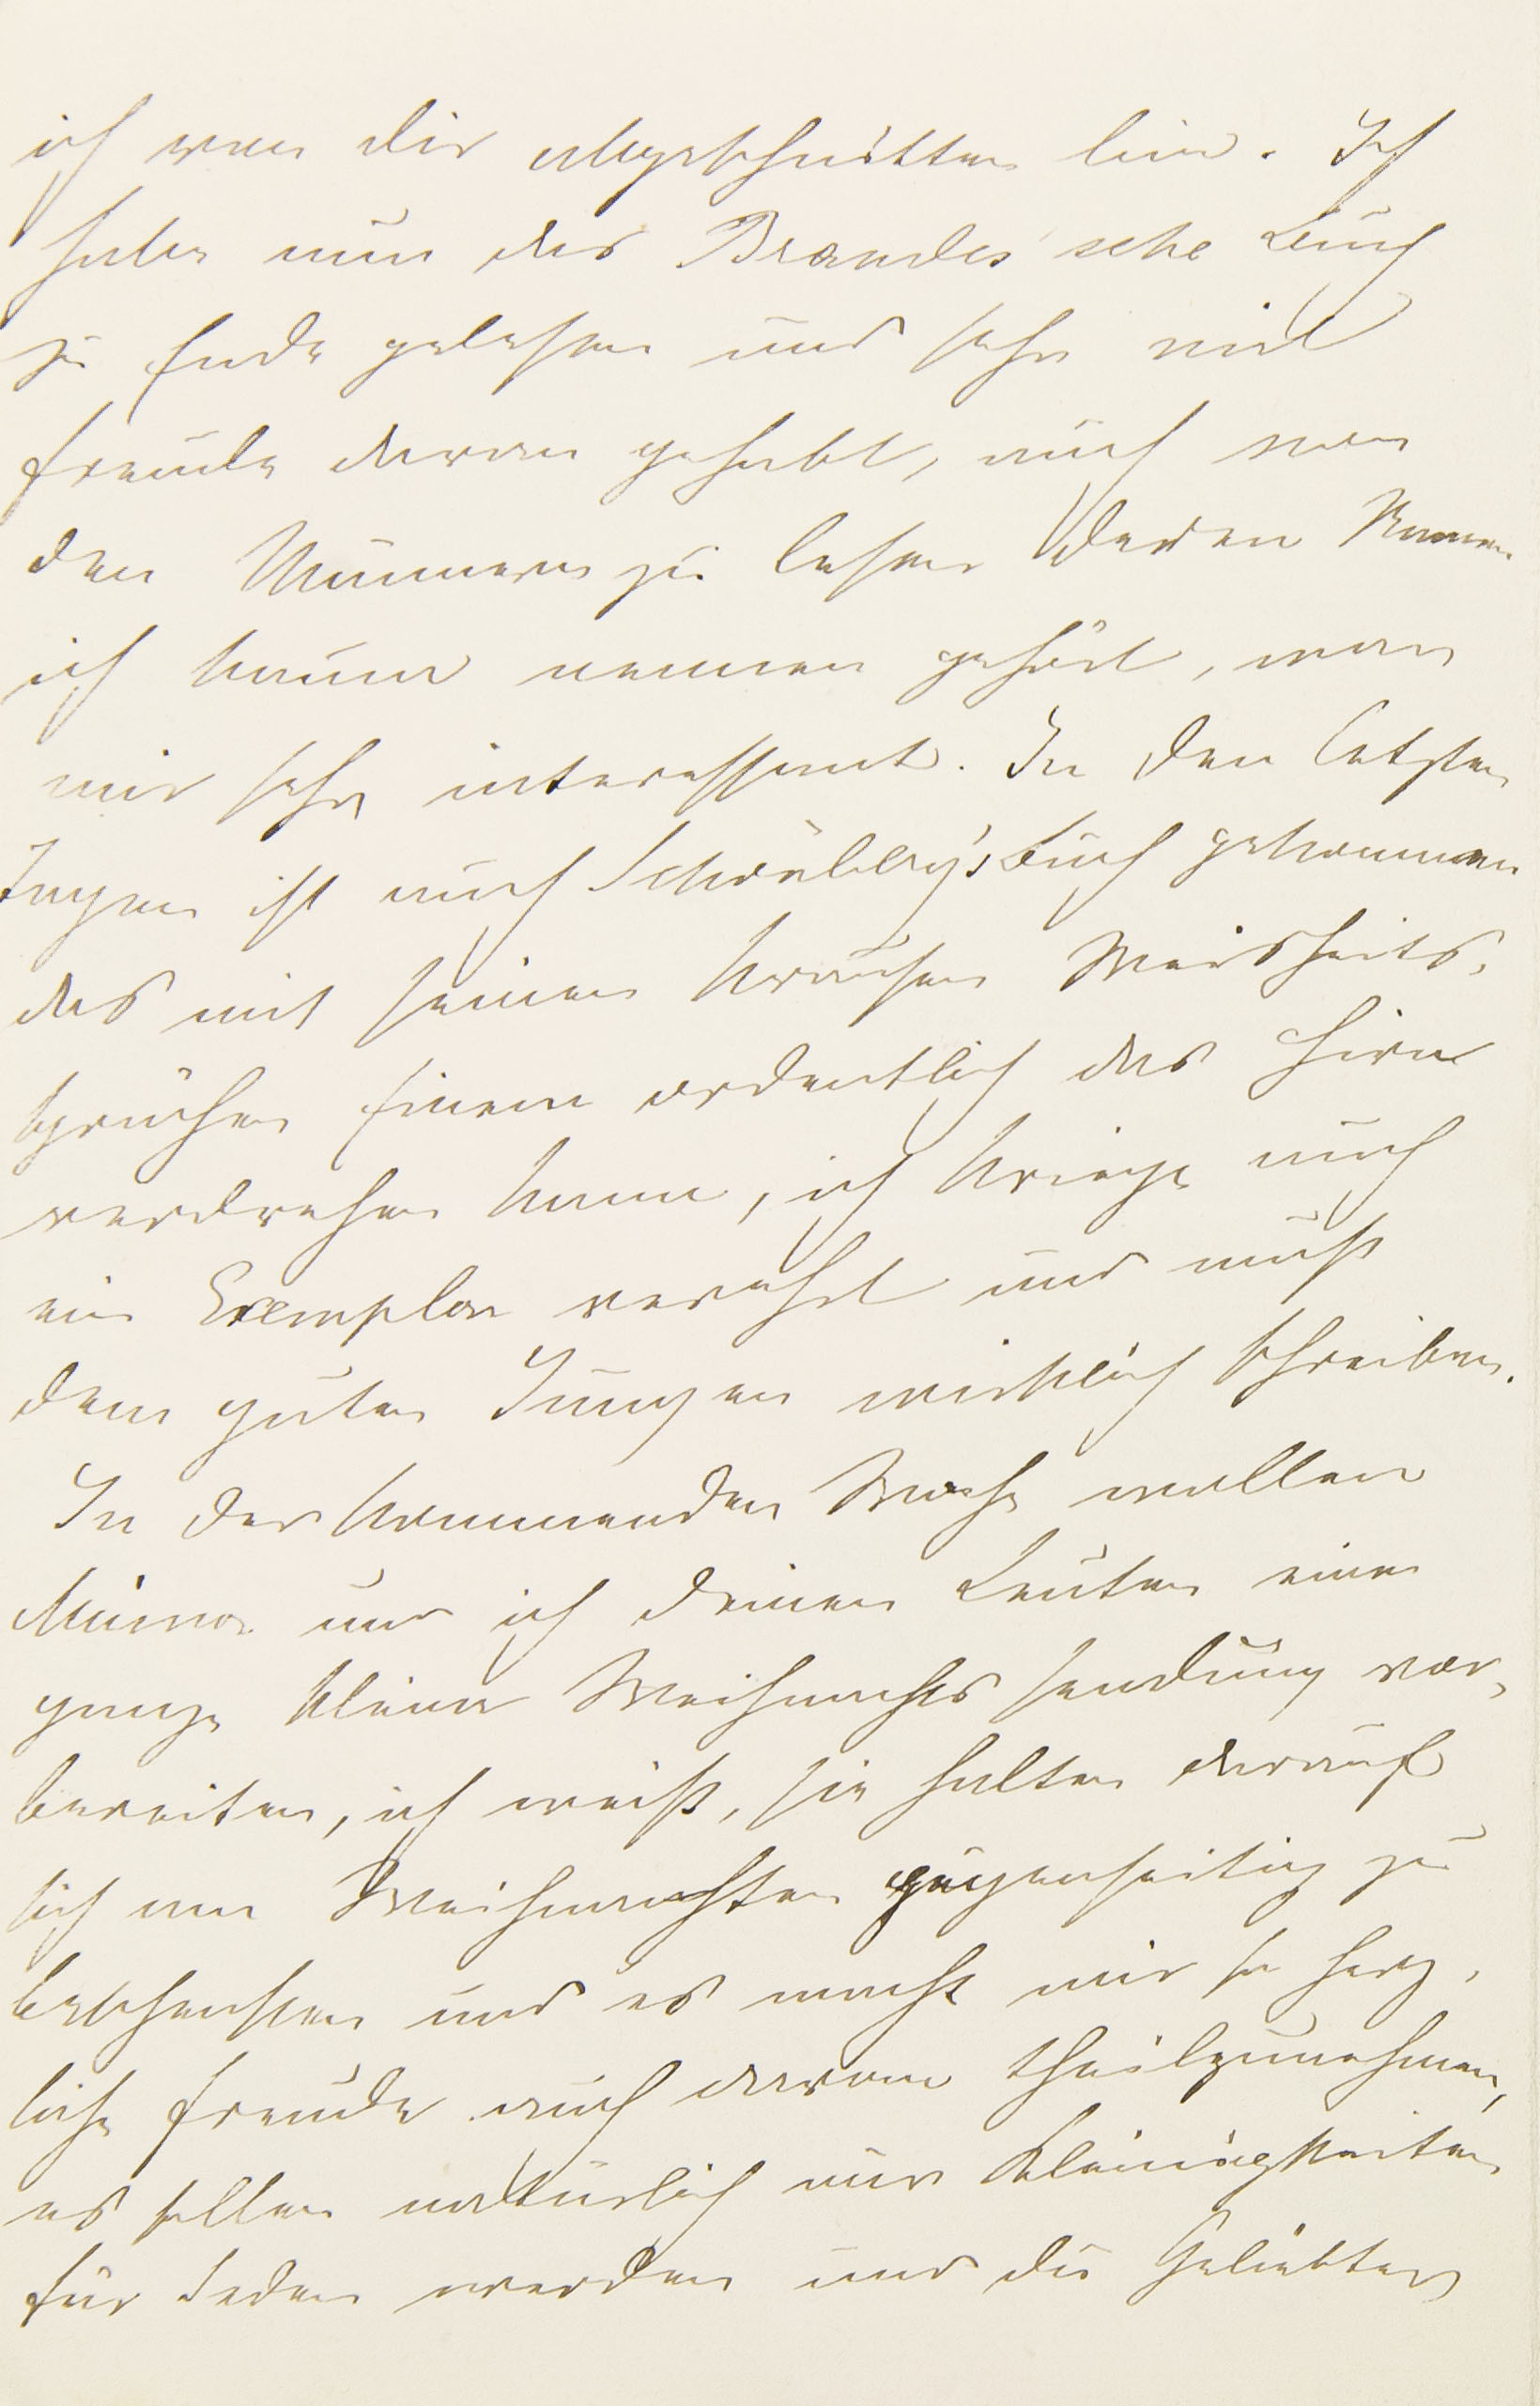 ich von dir abgeschnitten bin. Ich
habe nun das Brandes'sche Buch
zu Ende gelesen und sehr viel
Freude daran gehabt, auch von
den Männern zu lesen deren Namen
ich kaum nennen gehört, war
mir sehr interessant. In den letzten
Tagen ist auch Buch gekommen
das mit seinen krausen Weisheits-
sprüchen Einem ordentlich das Hirn
verdrehen kann, ich kriege auch
ein Exemplar verehrt und muß
dem guten Jungen wirklich schreiben.
In der kommenden Woche wollen
Minna und ich deinen Leuten eine
ganze kleine Weihnachtssendung vor-
bereiten, ich weiß, sie halten darauf
sich an Weihnachten gegenseitig zu
beschenken und es macht mir so herz-
liche Freude auch daran theilzunehmen,
es sollen natürlich nur Kleinigkeiten
für Jeden werden und die Geliebten